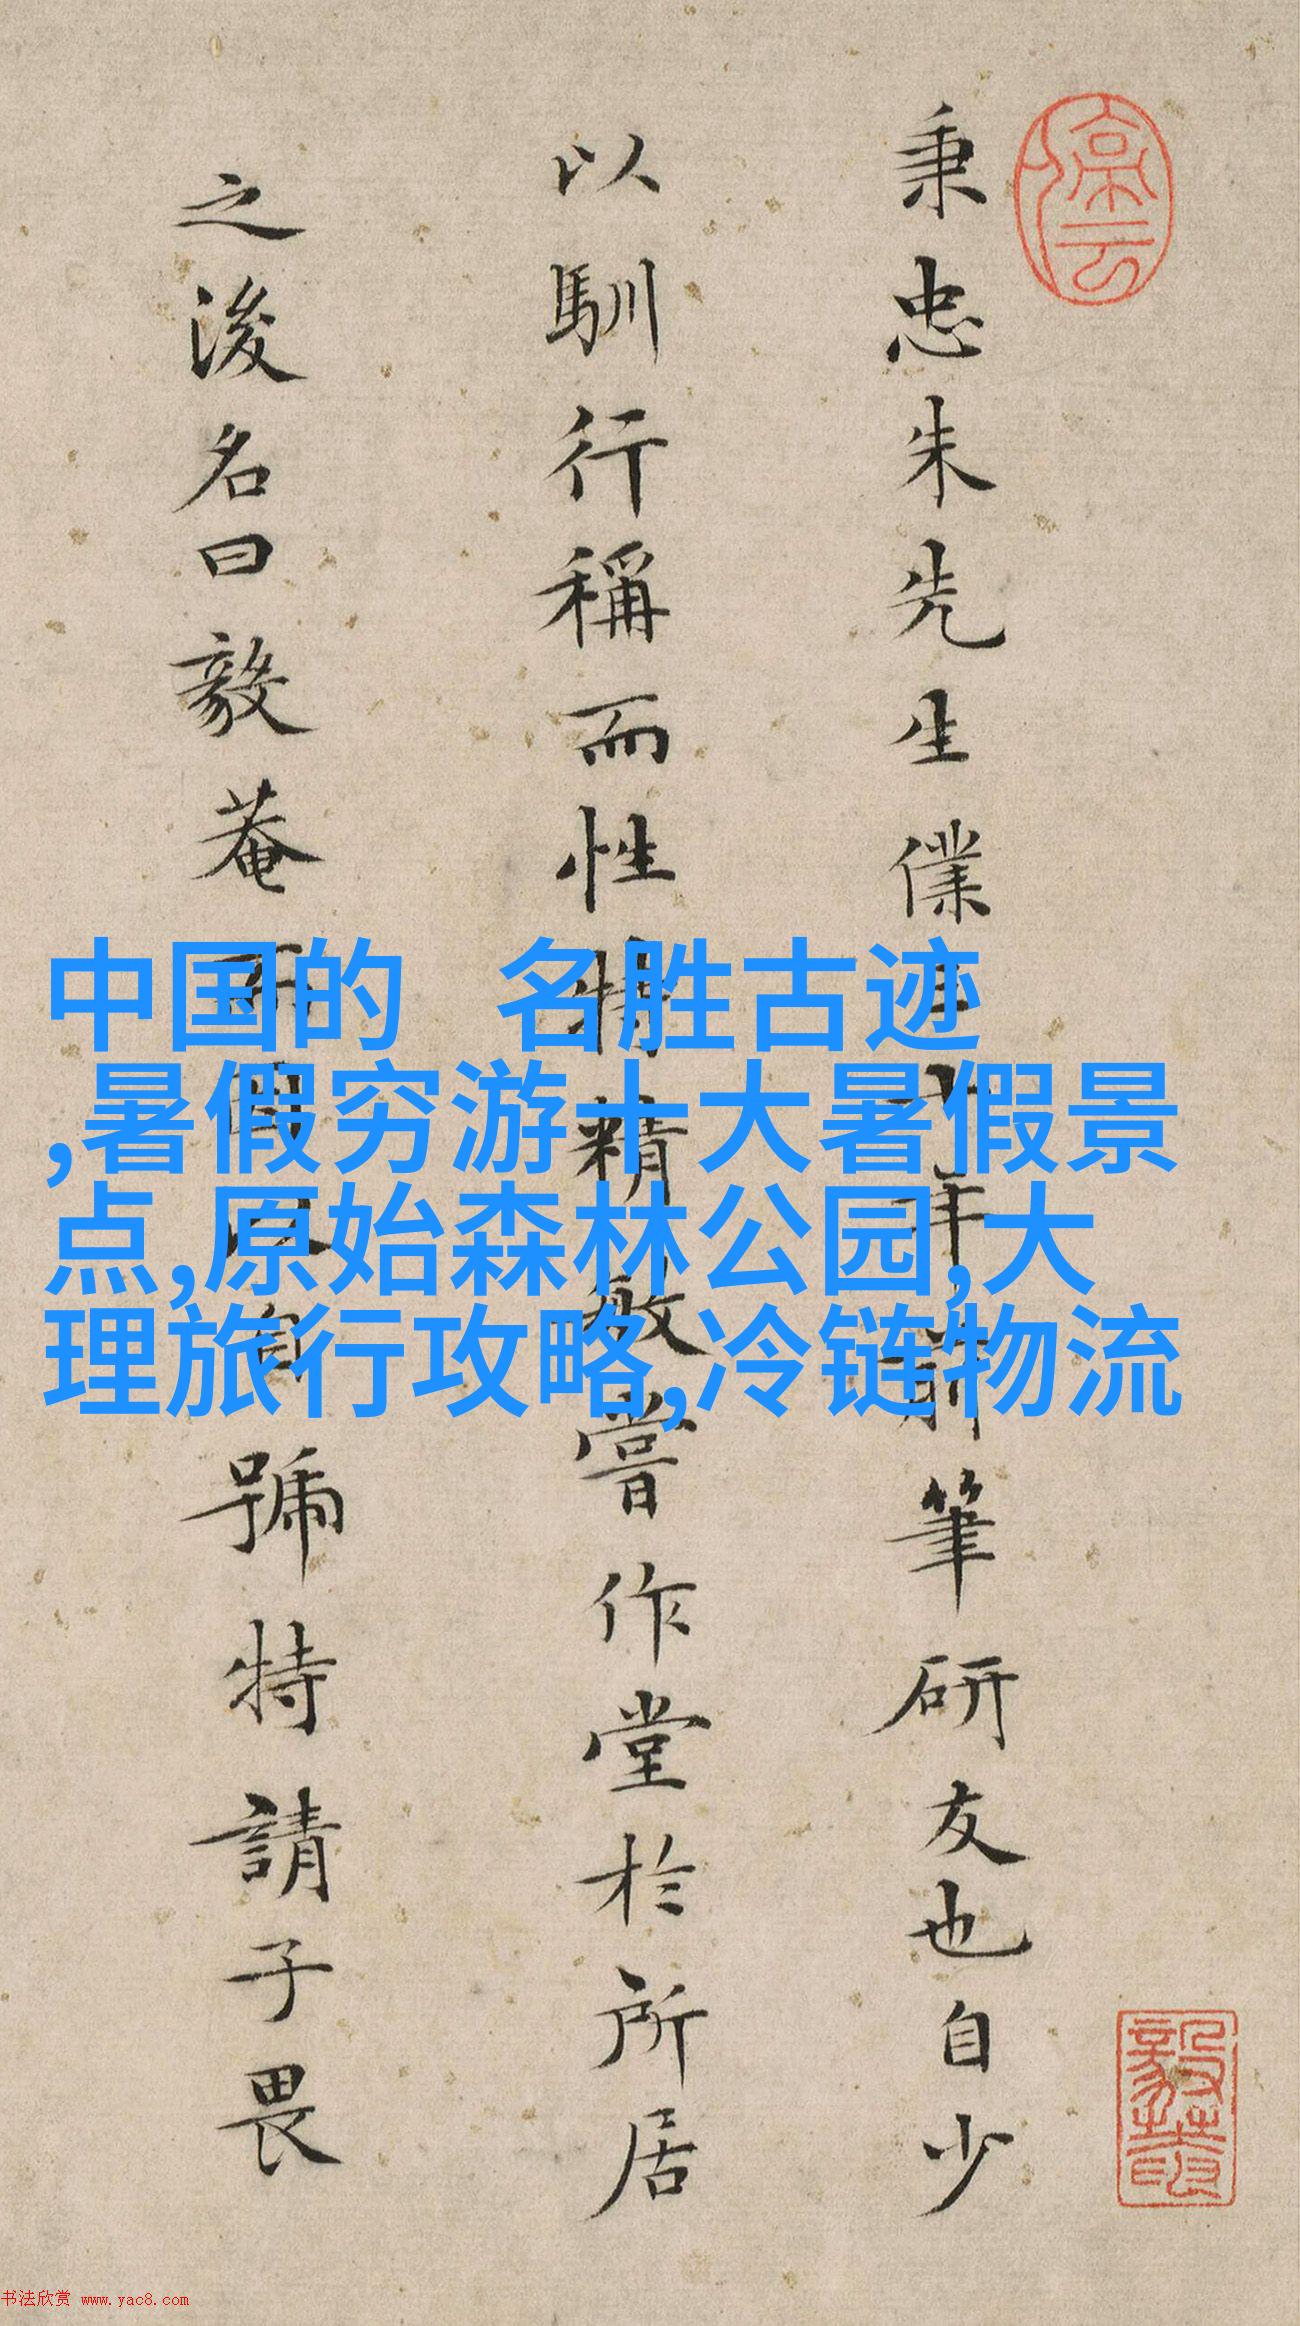 秉忠朱先生僕三十年前筆研友也自少
以馴行稱而性特精敏嘗作堂於所居
之後名曰毅菴而因以自號特請子畏
停云
中国的 名胜古迹
,暑假穷游十大暑假景
点,原始森林公园,大
理旅行攻略,冷链物流
书法欣赏 www.yac8.com